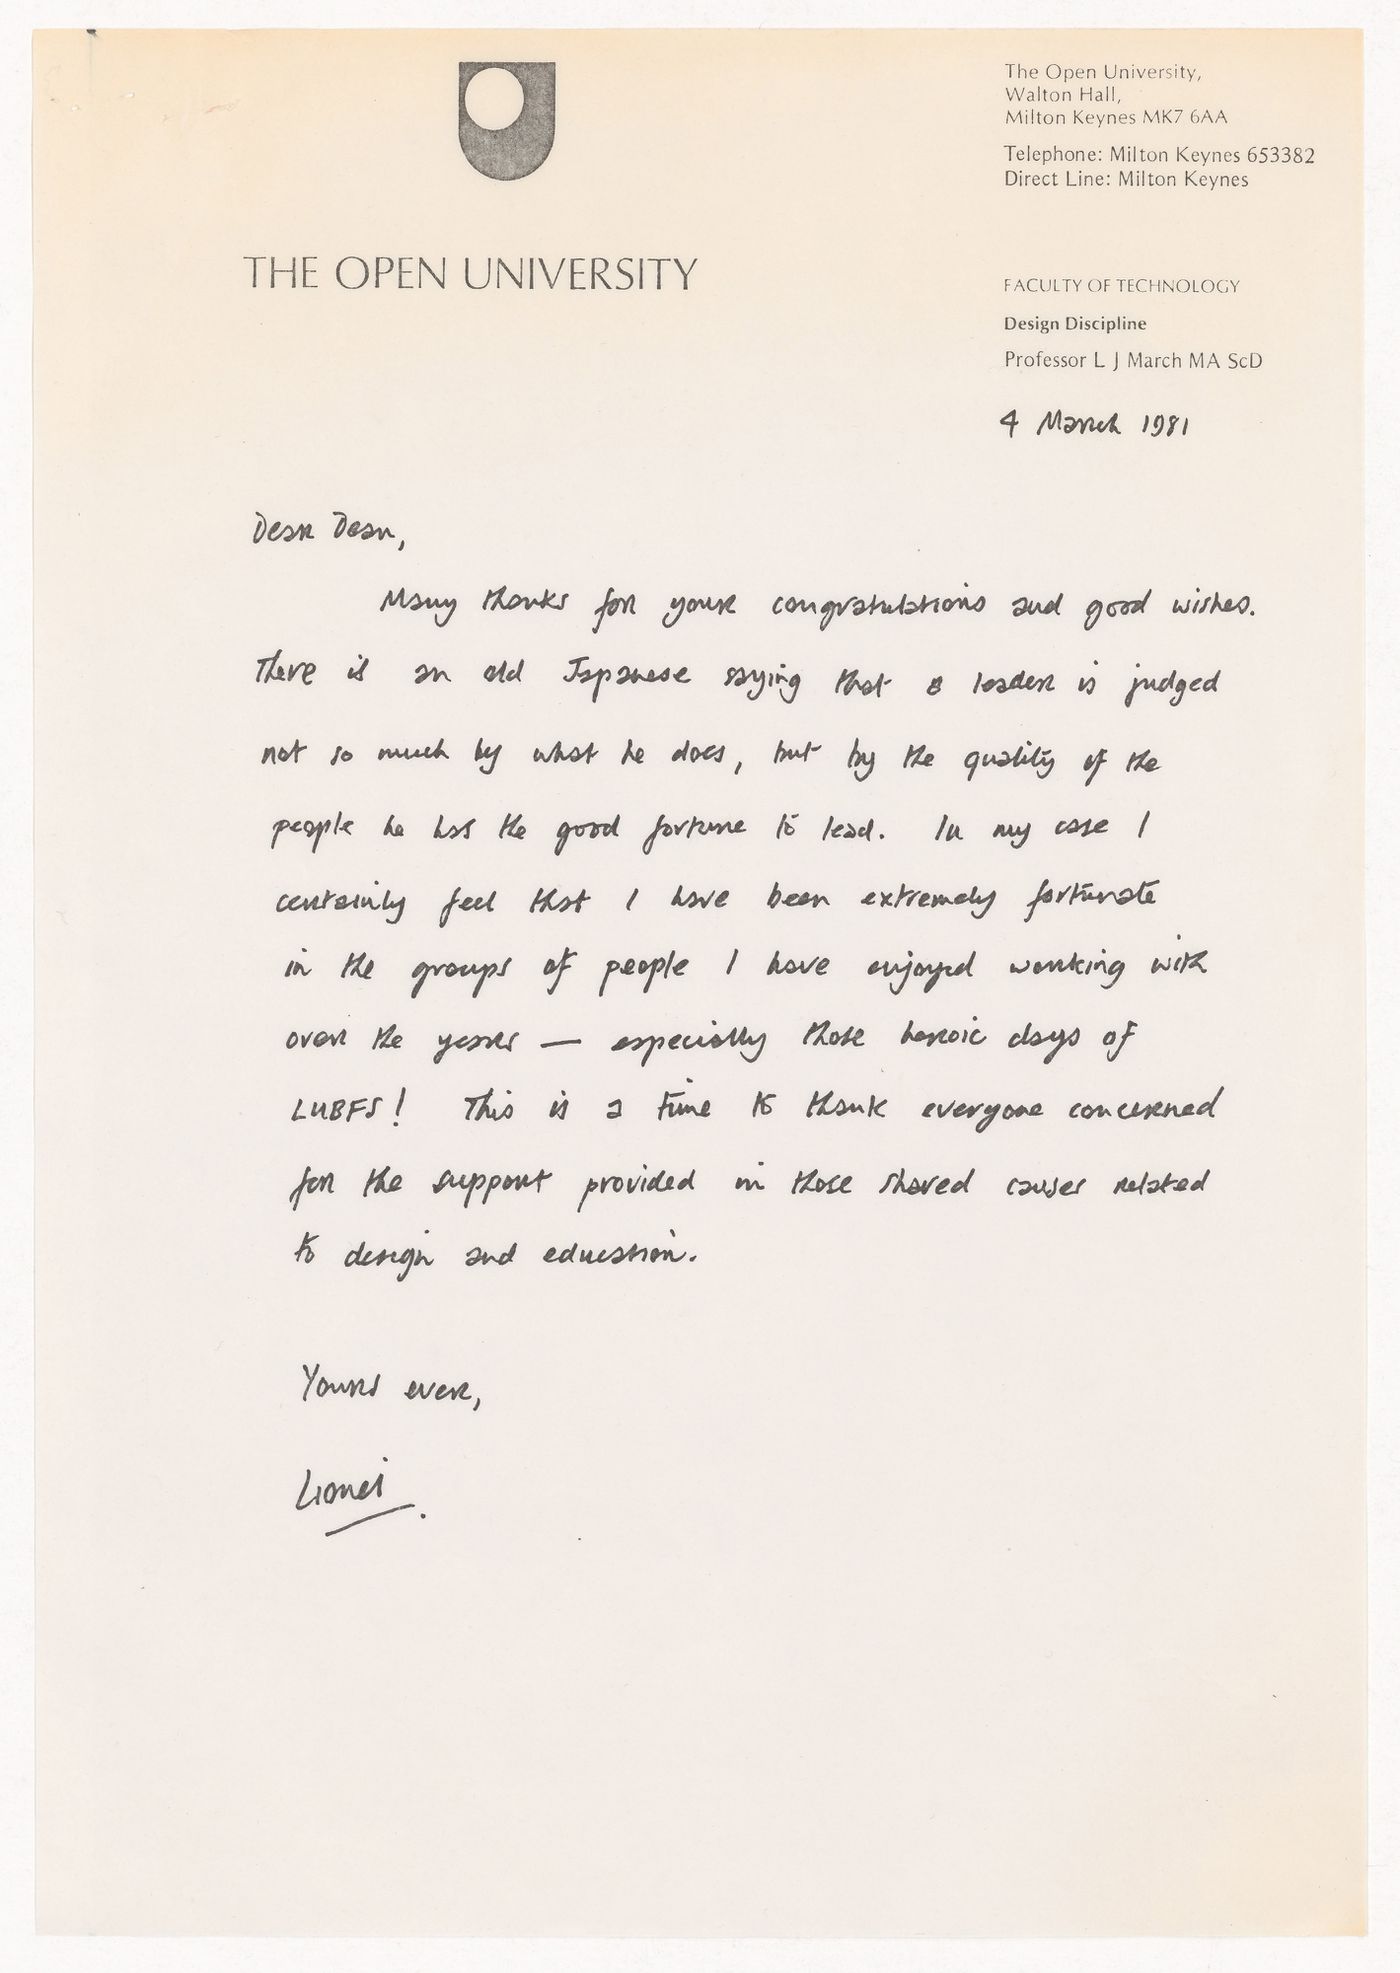 The Open University,
Walton Hall,
Milton Keynes MK7 6AA
Telephone: Milton Keynes 653382
Direct Line: Milton Keynes
THE OPEN UNIVERSITY
FACULTY OF TECHNOLOGY
Design Discipline
Professor L J March MA ScD
4 March 1981
Dear Dean,
Many thanks for your congratulations and good wishes.
There is an old Japanese saying that a leader is judged
not so much by what he does, but by the quality of the
people he has the good fortune to lead. In my case I
certainly feel that I have been extremely fortunate
in the groups of people I have enjoyed working with
over the years — especially those heroic days of
LUBFS! This is a time to thank everyone concerned
for the support provided in those shared causes related
to design and education.
Yours ever,
Lionel